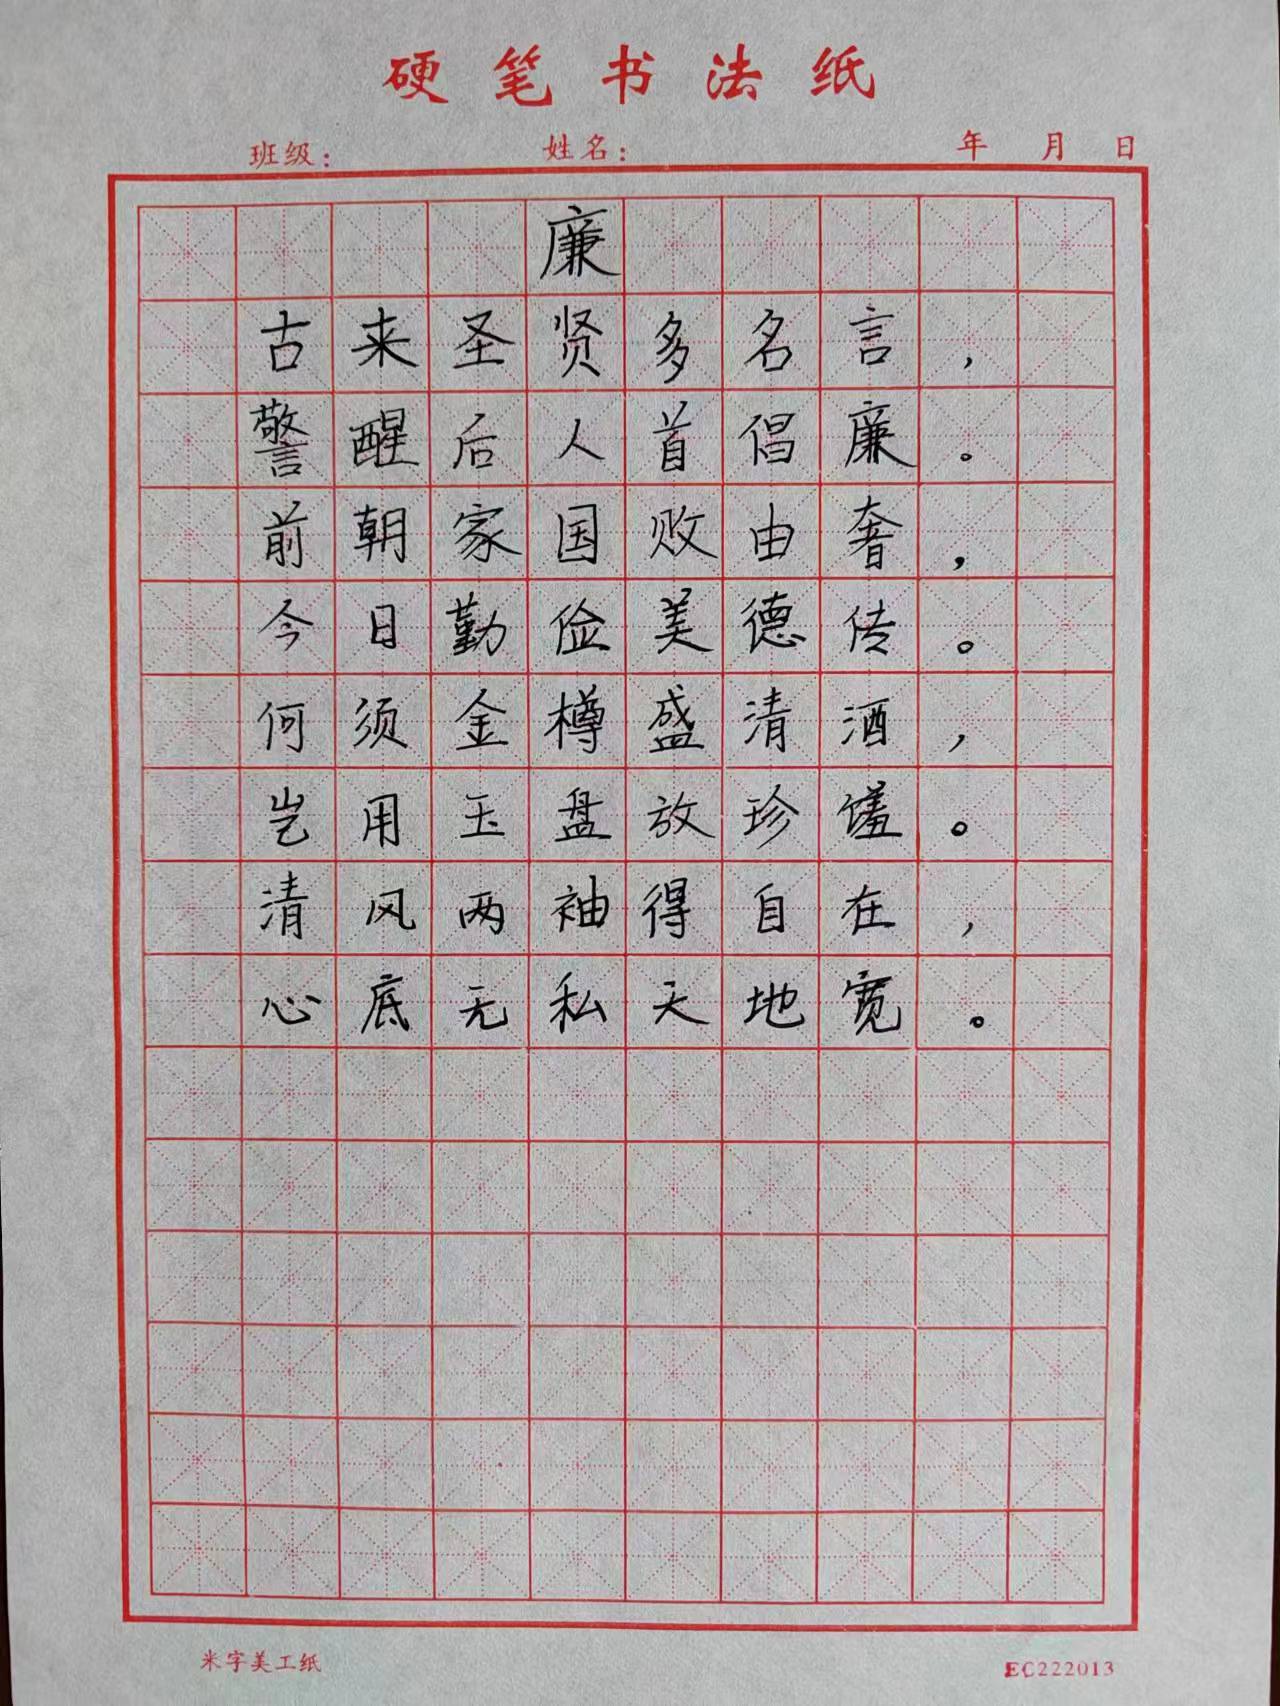 硬笔书法纸
班级： 姓名： 年 月 日
廉
古来圣贤多名言，
警醒后人首倡廉。
前朝家国败由奢，
今日勤俭美德传。
何须金樽盛清酒，
岂用玉盘放珍馐。
清风两袖得自在，
心底无私天地宽。
米字美工纸 EC222013